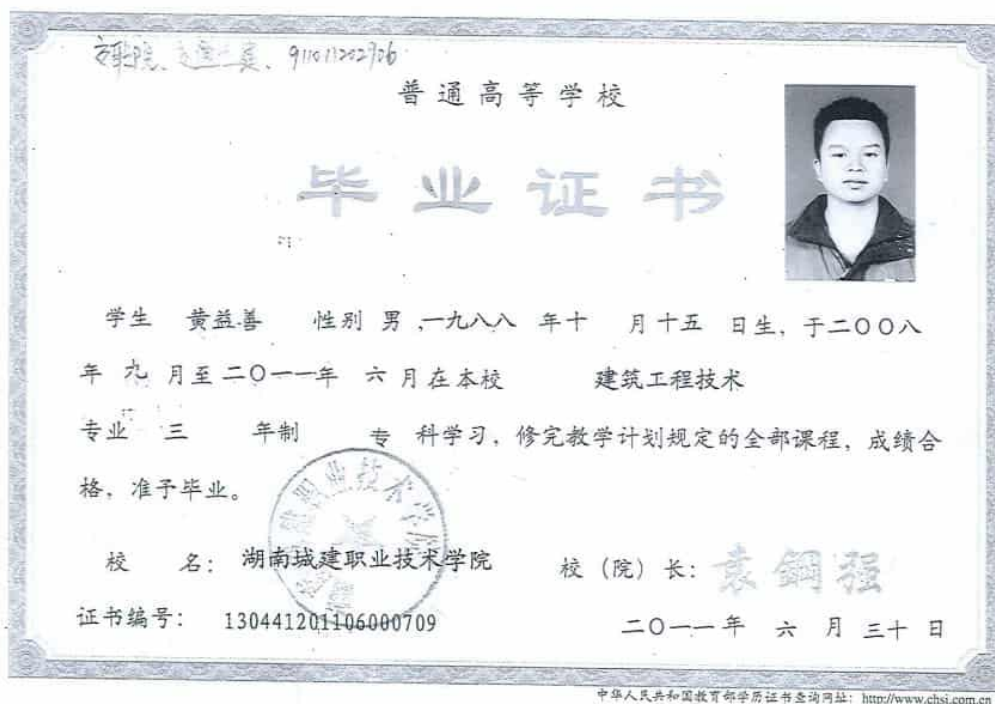 911011202906
普通高等学校
毕业证书
学生 黄益善 性别 男 ,一九八八 年十 月十五 日生，于二〇〇八
年 九 月至二〇一一年 六月在本校 建筑工程技术
专业 三 年制 专 科学习，修完教学计划规定的全部课程，成绩合
格，准予毕业。
校 名： 湖南城建职业技术学院 校（院）长： 袁鋼强
证书编号： 130441201106000709 二〇一一年 六 月 三十 日
中华人民共和国教育部学历证书查询网址：http://www.chsi.com.cn